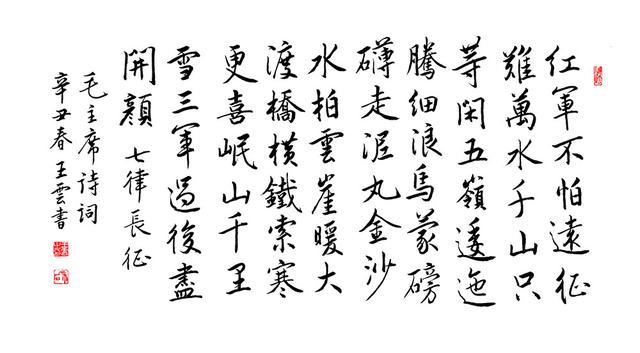 紅軍不怕遠征
難萬水千山只
等閑五嶺逶迤
騰細浪烏蒙磅
礴走泥丸金沙
水拍雲崖暖大
渡橋橫鐵索寒
更喜岷山千里
雪三軍過後盡
開顏 七律長征
毛主席詩詞
辛丑春王雲書